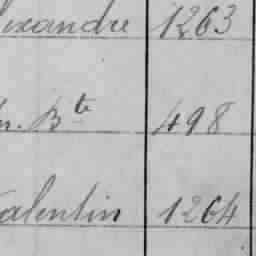 lexandre 1263
n. Bte 498
Valentin 1264